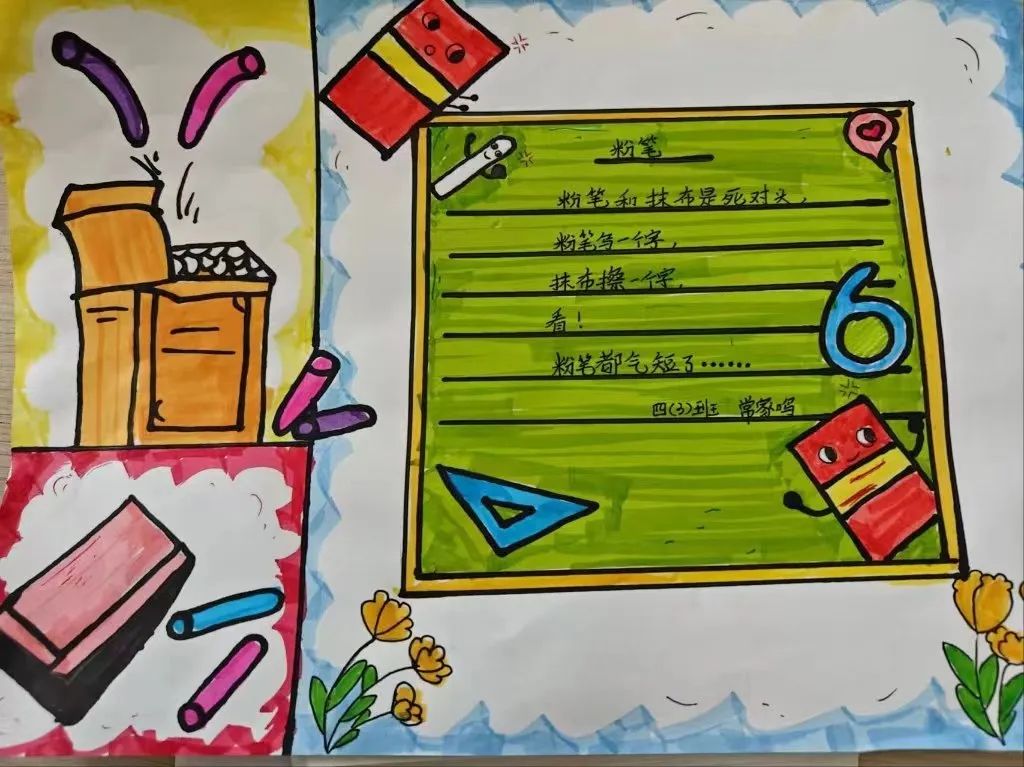 粉笔
粉笔和抹布是死对头，
粉笔写一个字，
抹布擦一个字，
看！
粉笔都气短了……
四(3)班 常家鸣
6